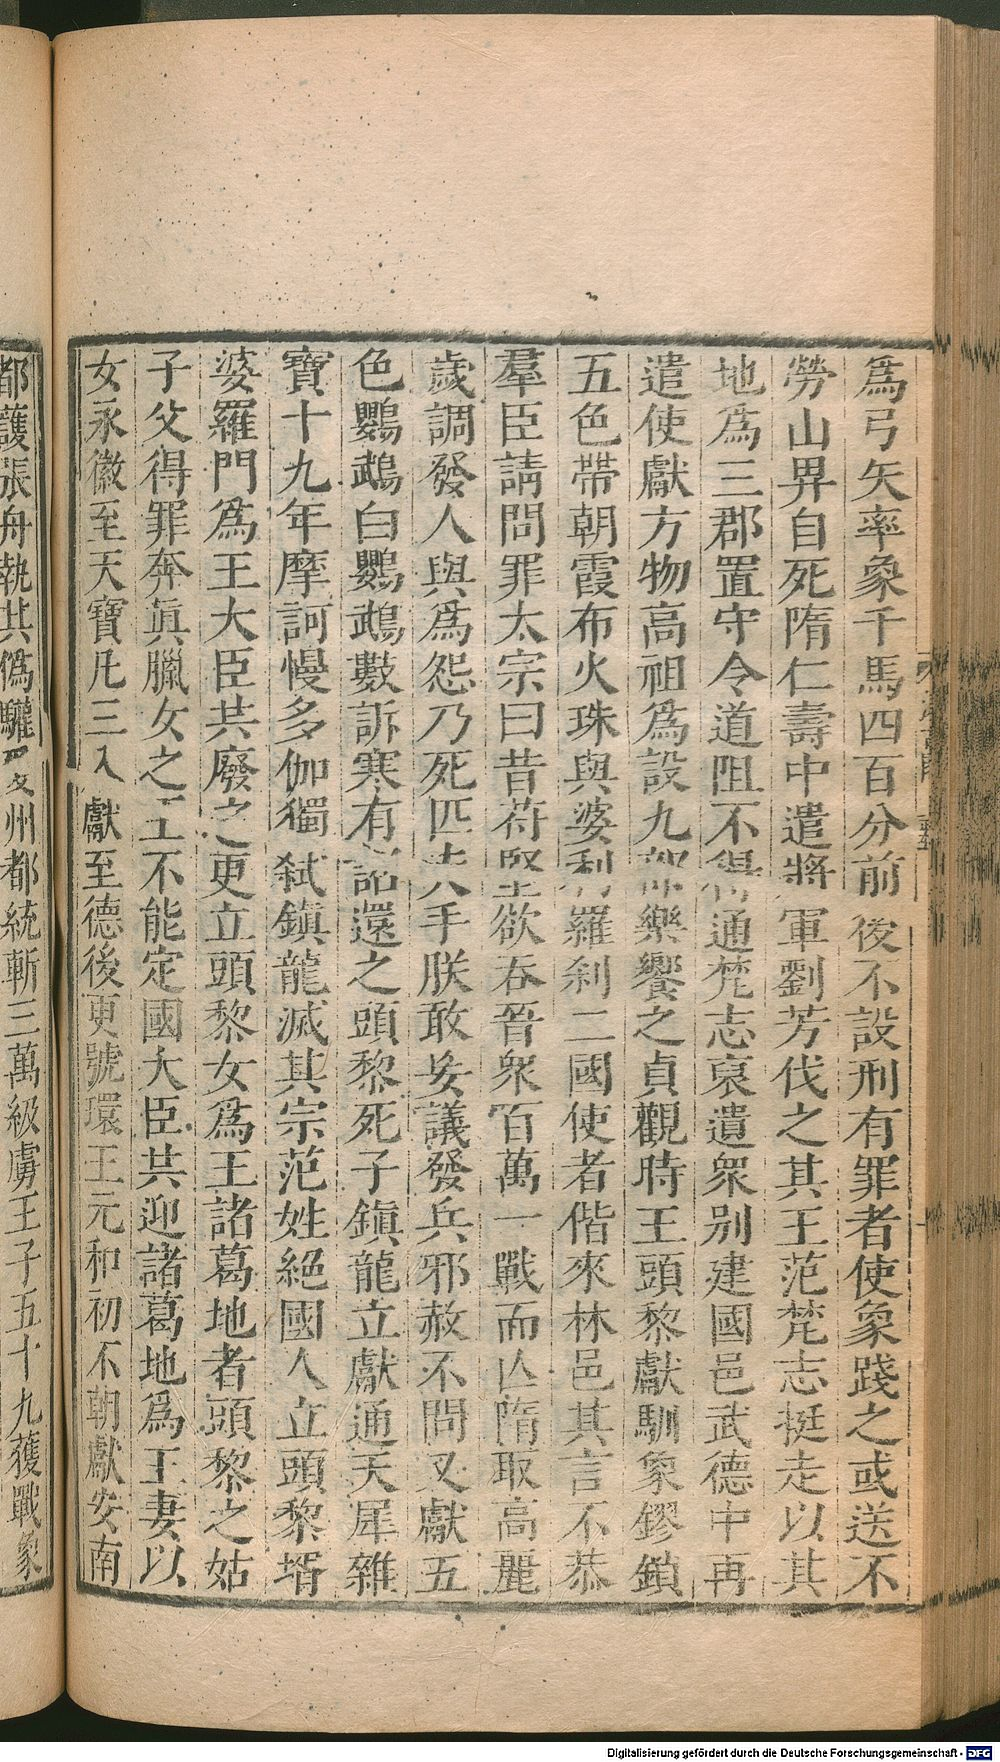 爲弓矢率象千馬四百分前後不設刑有罪者使象踐之或送不
勞山畀自死隋仁壽中遣將軍劉芳伐之其王范梵志挺走以其
地爲三郡置守令道阻不得通梵志裒遺衆别建國邑武德中再
遣使獻方物高祖爲設九部樂饗之貞觀時王頭黎獻馴象鏐鎖
五色帶朝霞布火珠與婆利羅刹二國使者偕來林邑其言不恭
羣臣請問罪太宗曰昔苻堅欲吞晉衆百萬一戰而亾隋取高麗
歲調發人與爲怨乃死匹夫手朕敢妄議發兵邪赦不問又獻五
色鸚鵡白鸚鵡數訴寒有詔還之頭黎死子鎭龍立獻通天犀雜
寶十九年摩訶慢多伽獨弑鎭龍滅其宗范姓絕國人立頭黎壻
婆羅門爲王大臣共廢之更立頭黎女爲王諸葛地者頭黎之姑
子父得罪奔眞臘女之王不能定國大臣共迎諸葛地爲王妻以
女永徽至天寶凡三入獻至德後更號環王元和初不朝獻安南
都護張舟執其僞驩愛州都統斬三萬級虜王子五十九獲戰象
Digitalisierung gefördert durch die Deutsche Forschungsgemeinschaft - DFG